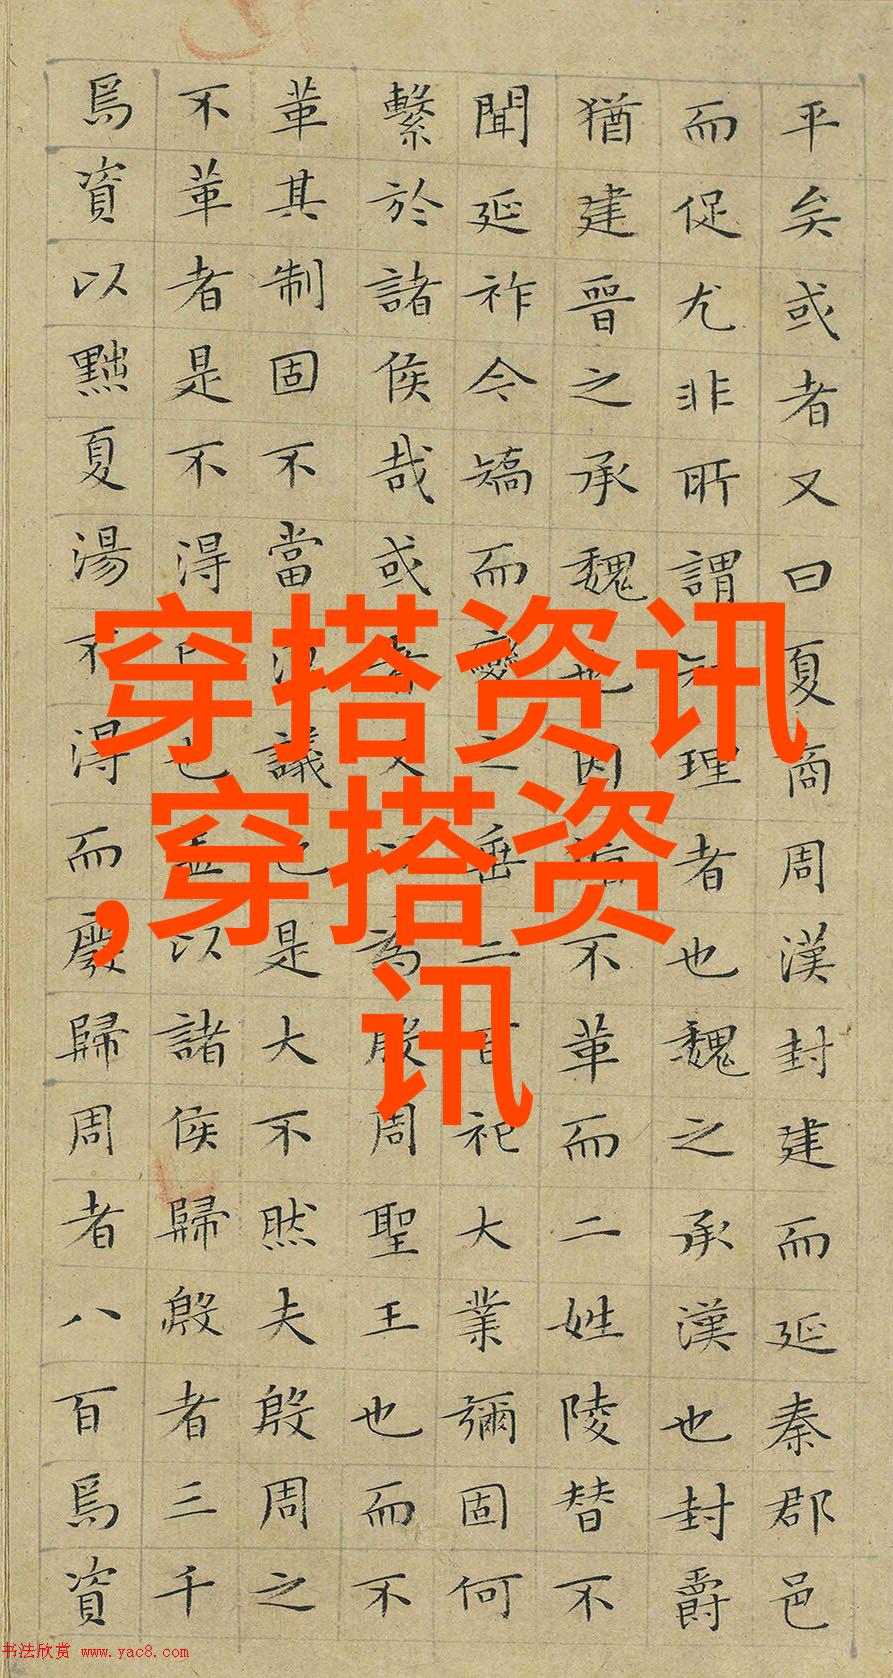 平矣或者又曰夏商周漢封建而延秦郡邑
而促尤非所謂知理者也魏之承漢也封爵
猶建晉之承魏也因循不革而二姓陵替不
聞延祚今矯而變之垂二百祀大業彌固何
繫於諸侯哉或者又以為殷周聖王也而不
革其制固不當復議也是大不然夫殷周之
不革者是不得已也蓋以諸侯歸殷者三千
焉資以黜夏湯不得而廢歸周者八百焉資
穿搭资讯
,穿搭资
讯
书法欣赏 www.yac8.com